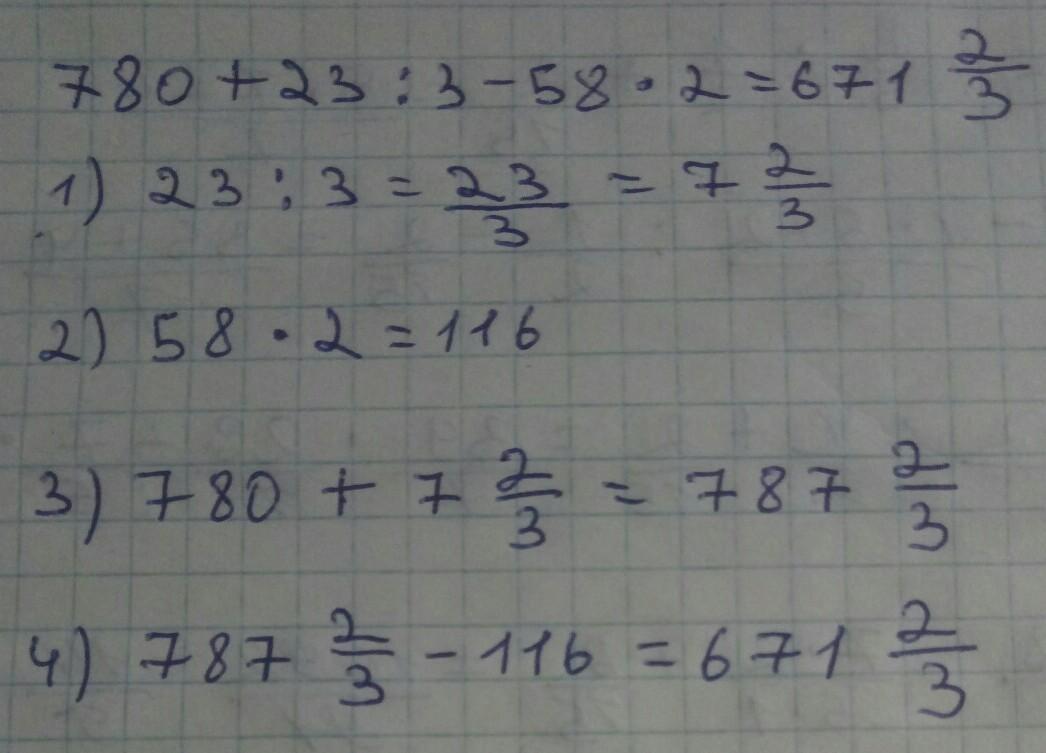 780 + 23 : 3 - 58 · 2 = 671 2/3
1) 23 : 3 = 23/3 = 7 2/3
2) 58 · 2 = 116
3) 780 + 7 2/3 = 787 2/3
4) 787 2/3 - 116 = 671 2/3